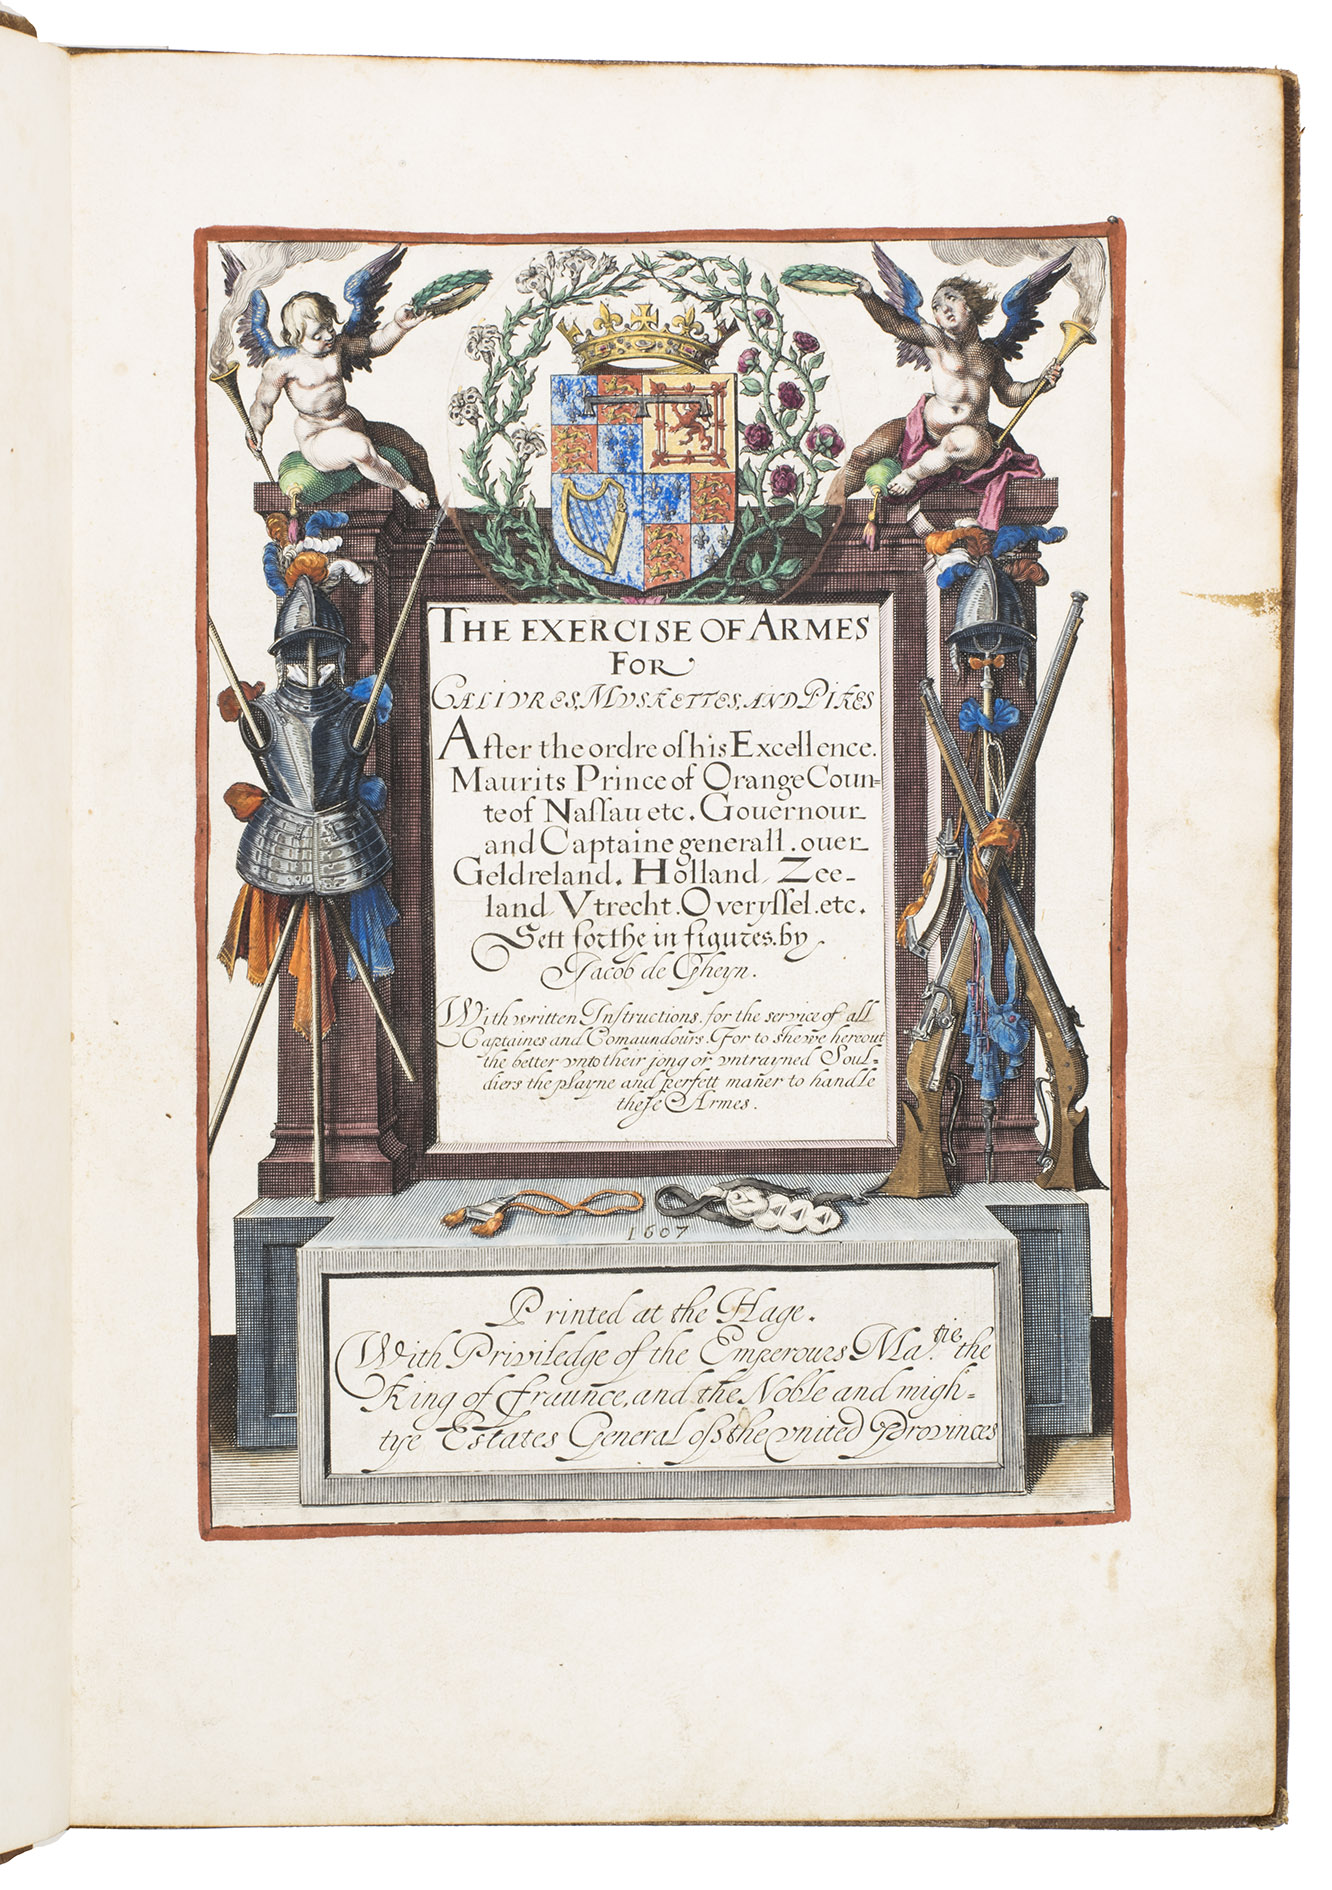 THE EXERCISE OF ARMES
FOR
CALIVRES, MVSKETTES, AND PIKES
After the ordre of his Excellence.
Maurits Prince of Orange Coun=
te of Naſſau etc. Gouernour
and Captaine generall. ouer
Geldreland. Holland Zee-
land Vtrecht. Overyſſel. etc.
Sett forthe in figures. by
Jacob de Gheyn.
With written Inſtructions. for the service of all
Captaines and Comaundours. For to shewe hereout
the better vnto their jong or vntrayned Soul-
diers the playne and perfett mañer to handle
theſe Armes.
1607
Printed at the Hage.
With Priviledge of the Emperours Ma.tie the
King of fraunce, and the Noble and migh=
tye Estates General of the vnited Provinces